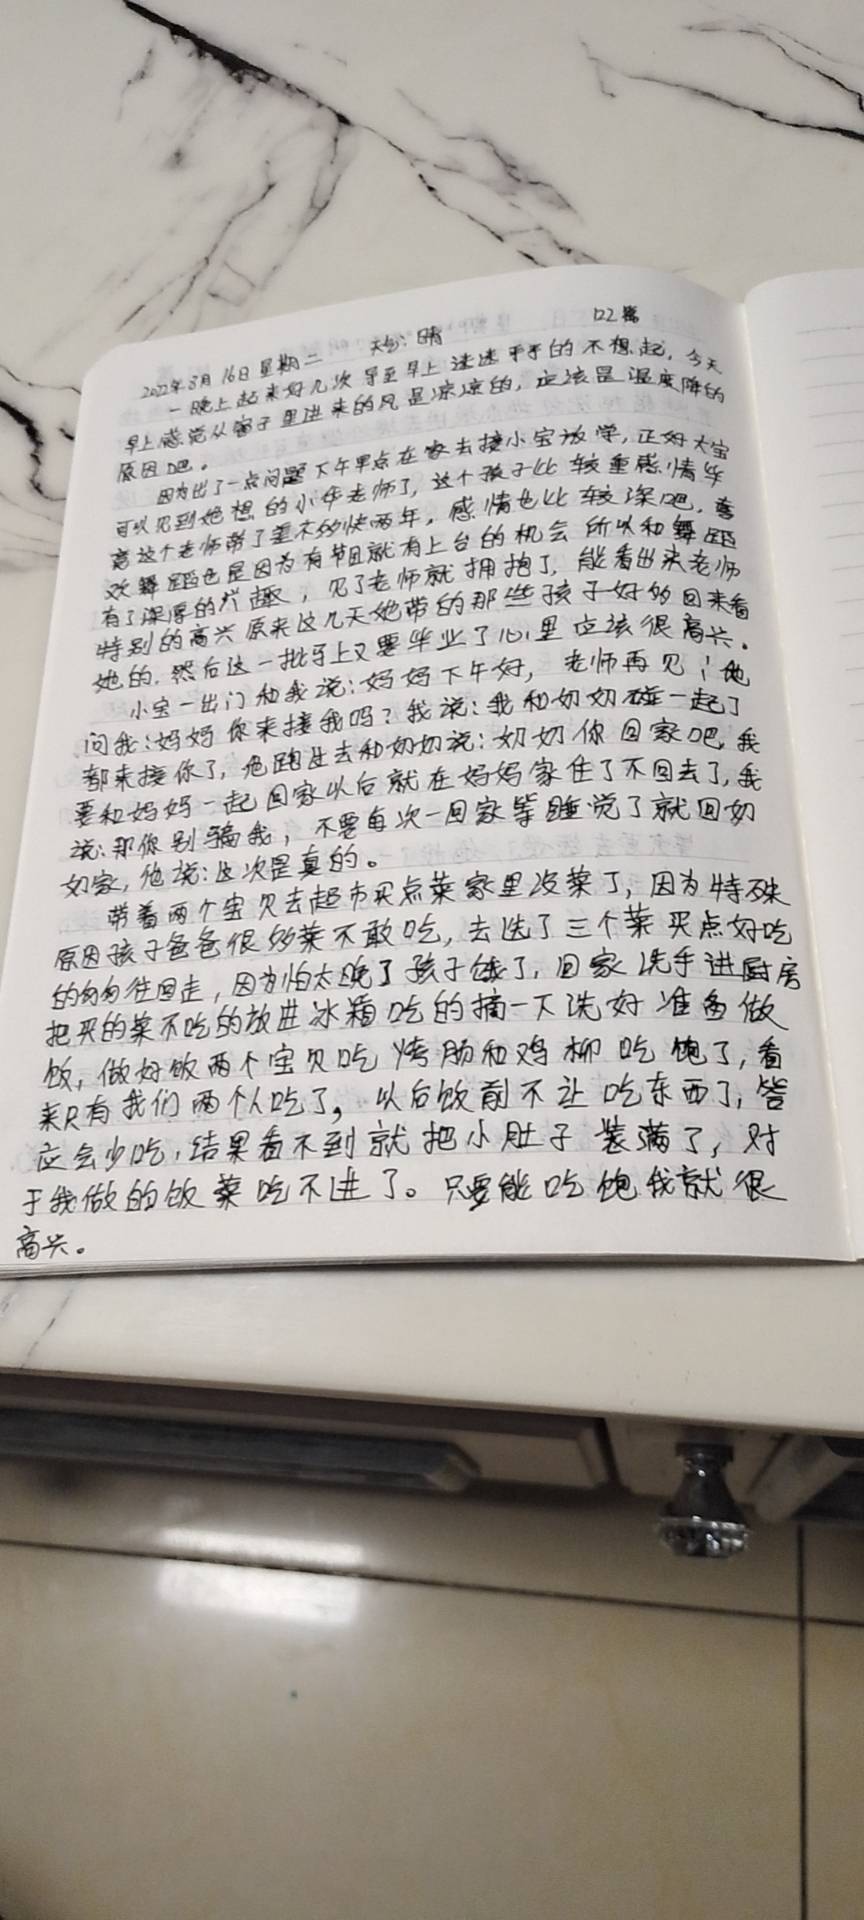 2022年8月16日星期二 天气:晴 122篇
一晚上起来好几次导至早上迷迷乎乎的不想起,今天
早上感觉从窗子里进来的风是凉凉的,应该是温度降的
原因吧。
因为出了一点问题下午早点在家去接小宝放学,正好大宝
可以见到她想的小 老师了,这个孩子比较重感情毕
竟这个老师带了差不多快两年,感情也比较深吧,喜
欢舞蹈也是因为有节目就有上台的机会所以和舞蹈
有了深厚的兴趣,见了老师就拥抱了,能看出来老师
特别的高兴原来这几天她带的那些孩子好多回来看
她的,然后这一批马上又要毕业了心里应该很高兴。
小宝一出门和我说:妈妈下午好,老师再见!他
问我:妈妈你来接我吗?我说:我和奶奶碰一起了
都来接你了,他跑过去和奶奶说:奶奶你回家吧,我
要和妈妈一起回家以后就在妈妈家住了不回去了,我
说:那你别骗我,不要每次一回家等睡觉了就回奶
奶家,他说:这次是真的。
带着两个宝贝去超市买点菜家里没菜了,因为特殊
原因孩子爸爸很多菜不敢吃,去选了三个菜买点好吃
的匆匆往回走,因为怕太晚了孩子饿了,回家洗手进厨房
把买的菜不吃的放进冰箱吃的摘一下洗好准备做
饭,做好饭两个宝贝吃烤肠和鸡柳吃饱了,看
来只有我们两个人吃了,以后饭前不让吃东西了,答
应会少吃,结果看不到就把小肚子装满了,对
于我做的饭菜吃不进了。只要能吃饱我就很
高兴。